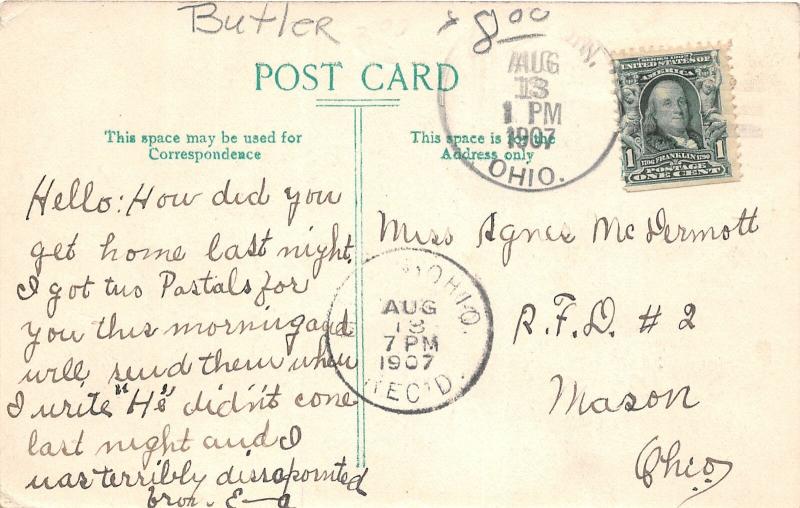 Butler
8.00
POST CARD
This space may be used for
Correspondence
This space is for the
Address only
AUG
13
1 PM
1907
OHIO.
SERIES 1902
UNITED STATES OF
AMERICA
1
1706 FRANKLIN 1790
1
POSTAGE
ONE CENT
Hello: How did you
get home last night.
I got two Postals for
you this morning and
will send them when
I write "He" didn't come
last night and I
was terribly dissapointed
from E—a
OHIO.
AUG
13
7 PM
1907
REC'D.
Miss Agnes McDermott
R.F.D. # 2
Mason
Ohio